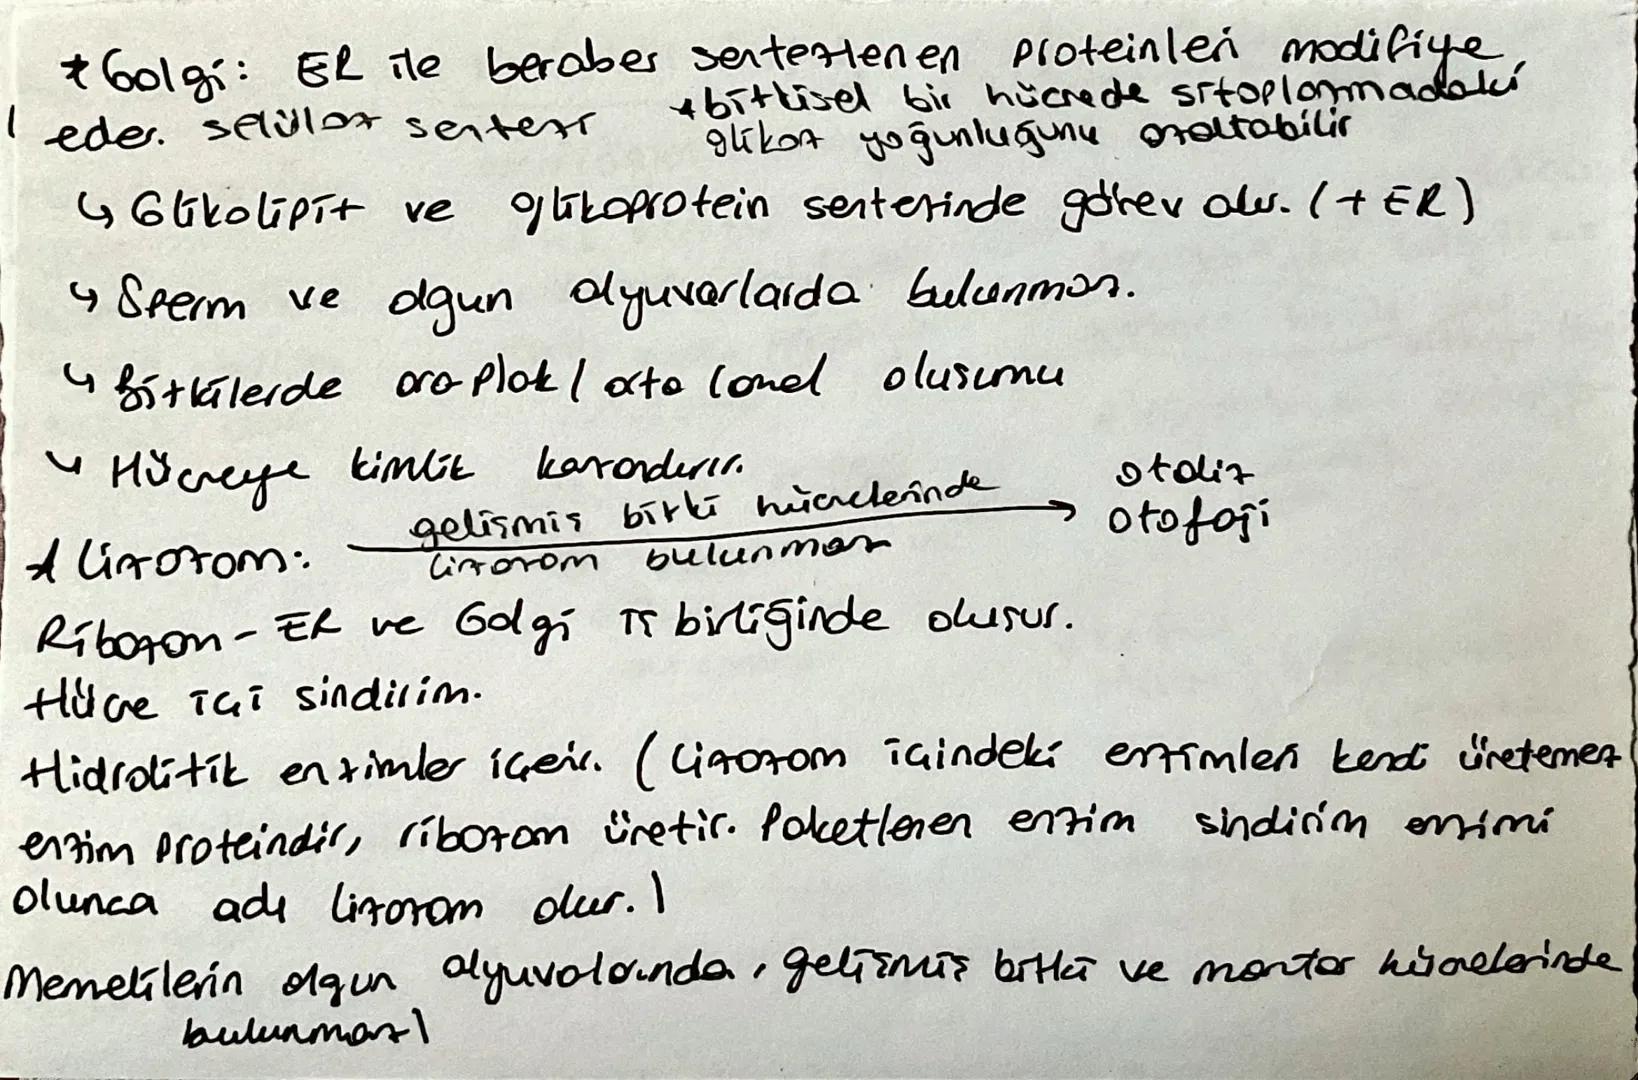 * Golgi: ER ile beraber sentezlenen proteinleri modifiye
eder. selüloz sentezi
* bitkisel bir hücrede sitoplazmadaki
glikoz yoğunluğunu azaltabilir
↳ Glikolipit ve glikoprotein sentezinde görev alır. (+ ER)
↳ Sperm ve olgun alyuvarlarda bulunmaz.
↳ Bitkilerde ara plak / orta lamel oluşumu
↳ Hücreye kimlik kazandırır.
* Lizozom: gelişmiş bitki hücrelerinde
lizozom bulunmaz
→ otoliz
otofaji
Ribozom - ER ve Golgi iş birliğinde oluşur.
Hücre içi sindirim.
Hidrolitik enzimler içerir. (Lizozom içindeki enzimleri kendi üretemez
enzim proteindir, ribozom üretir. Paketlenen enzim sindirim enzimi
olunca adı lizozom olur.)
Memelilerin olgun alyuvalarında, gelişmiş bitki ve mantar hücrelerinde
bulunmaz!